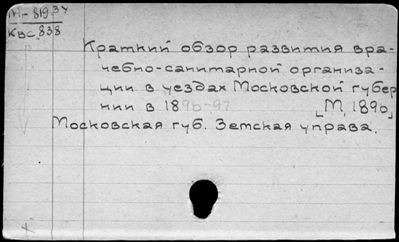 М-819 34
КВС 838
Краткий обзор развития вра-
чебно-санитарной организа-
ции в уездах Московской губер
нии в 1896-97 [М, 1896]
Московская губ. Земская управа.